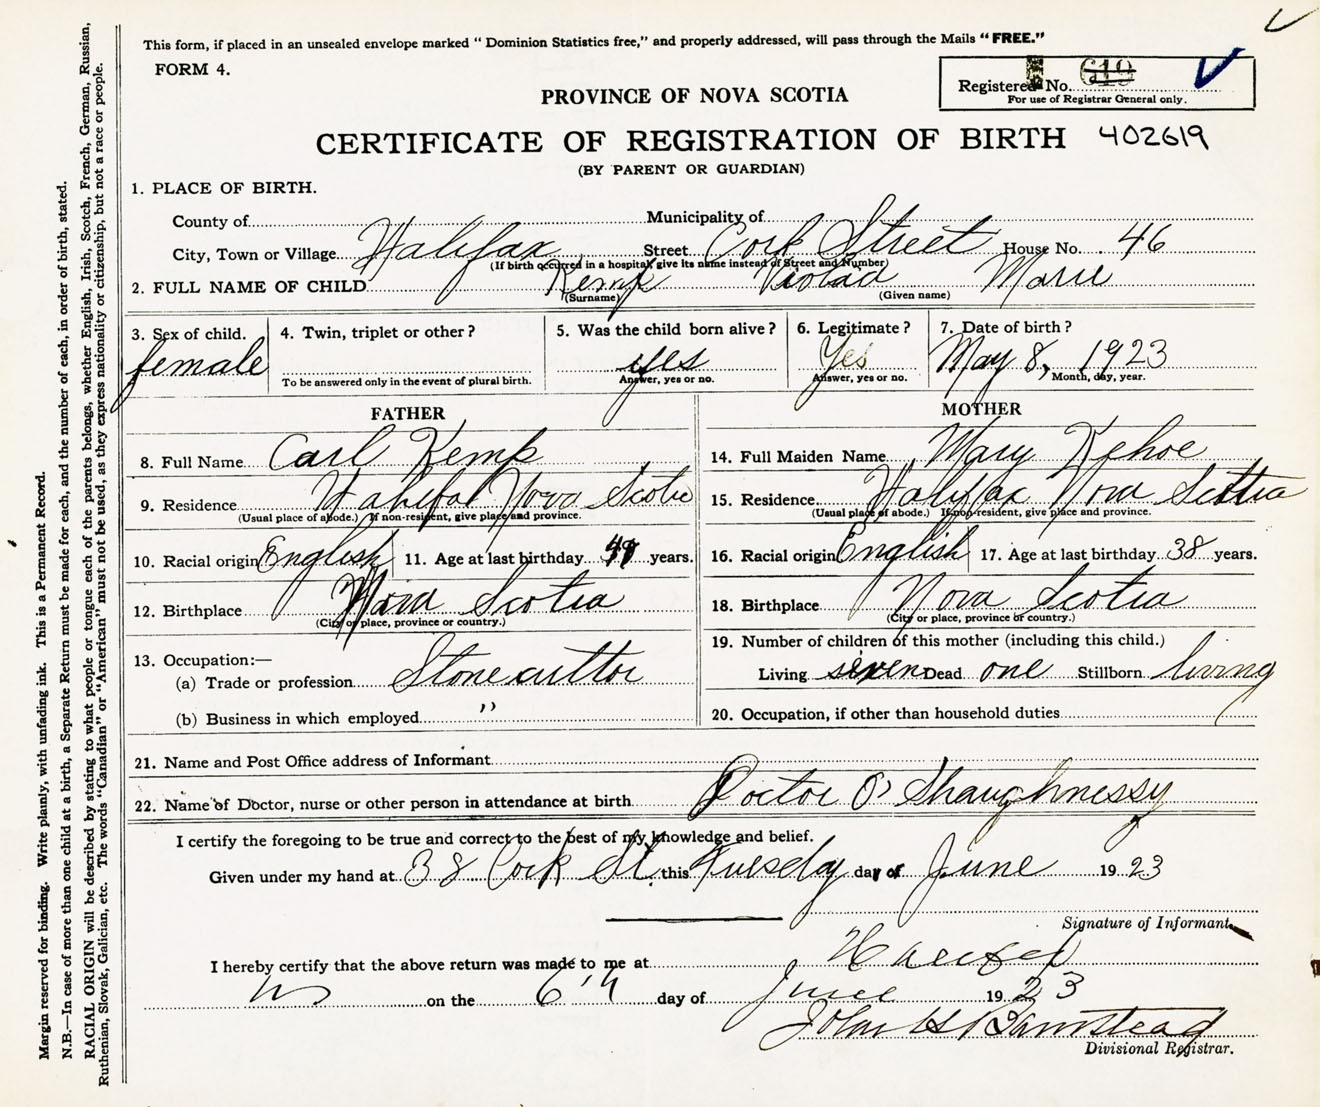 This form, if placed in an unsealed envelope marked “ Dominion Statistics free,” and properly addressed, will pass through the Mails “ FREE.”
FORM 4.
Registered No. 619
For use of Registrar General only.
PROVINCE OF NOVA SCOTIA
CERTIFICATE OF REGISTRATION OF BIRTH 402619
(BY PARENT OR GUARDIAN)
1. PLACE OF BIRTH.
County of Municipality of
City, Town or Village Halifax Street Cork Street House No. 46
(If birth occurred in a hospital give its name instead of Street and Number)
2. FULL NAME OF CHILD Kemp Marie
(Surname) (Given name)
3. Sex of child. female
4. Twin, triplet or other?
To be answered only in the event of plural birth.
5. Was the child born alive? yes
Answer, yes or no.
6. Legitimate? Yes
Answer, yes or no.
7. Date of birth? May 8, 1923
Month, day, year.
FATHER
8. Full Name Carl Kemp
9. Residence Halifax Nova Scotia
(Usual place of abode.) If non-resident, give place and province.
10. Racial origin English
11. Age at last birthday years.
12. Birthplace Nova Scotia
(City or place, province or country.)
13. Occupation:—
(a) Trade or profession Stone cuttor
(b) Business in which employed ”
MOTHER
14. Full Maiden Name Mary Kehoe
15. Residence Halifax Nova Scotia
(Usual place of abode.) If non-resident, give place and province.
16. Racial origin English
17. Age at last birthday 38 years.
18. Birthplace Nova Scotia
(City or place, province or country.)
19. Number of children of this mother (including this child.)
Living seven Dead one Stillborn living
20. Occupation, if other than household duties
21. Name and Post Office address of Informant
22. Name of Doctor, nurse or other person in attendance at birth Doctor O' Shaughnessy
I certify the foregoing to be true and correct to the best of my knowledge and belief.
Given under my hand at 38 Cork St. this Tuesday day of June 1923
Signature of Informant.
I hereby certify that the above return was made to me at Halifax
NS on the 6th day of June 1923
John H Barnstead
Divisional Registrar.
Margin reserved for binding. Write plainly, with unfading ink. This is a Permanent Record.
N.B.—In case of more than one child at a birth, a Separate Return must be made for each, and the number of each, in order of birth, stated.
RACIAL ORIGIN will be described by stating to what people or tongue each of the parents belongs, whether English, Irish, Scotch, French, German, Russian,
Ruthenian, Slovak, Galician, etc. The words “Canadian” or “American” must not be used, as they express nationality or citizenship, but not a race or people.